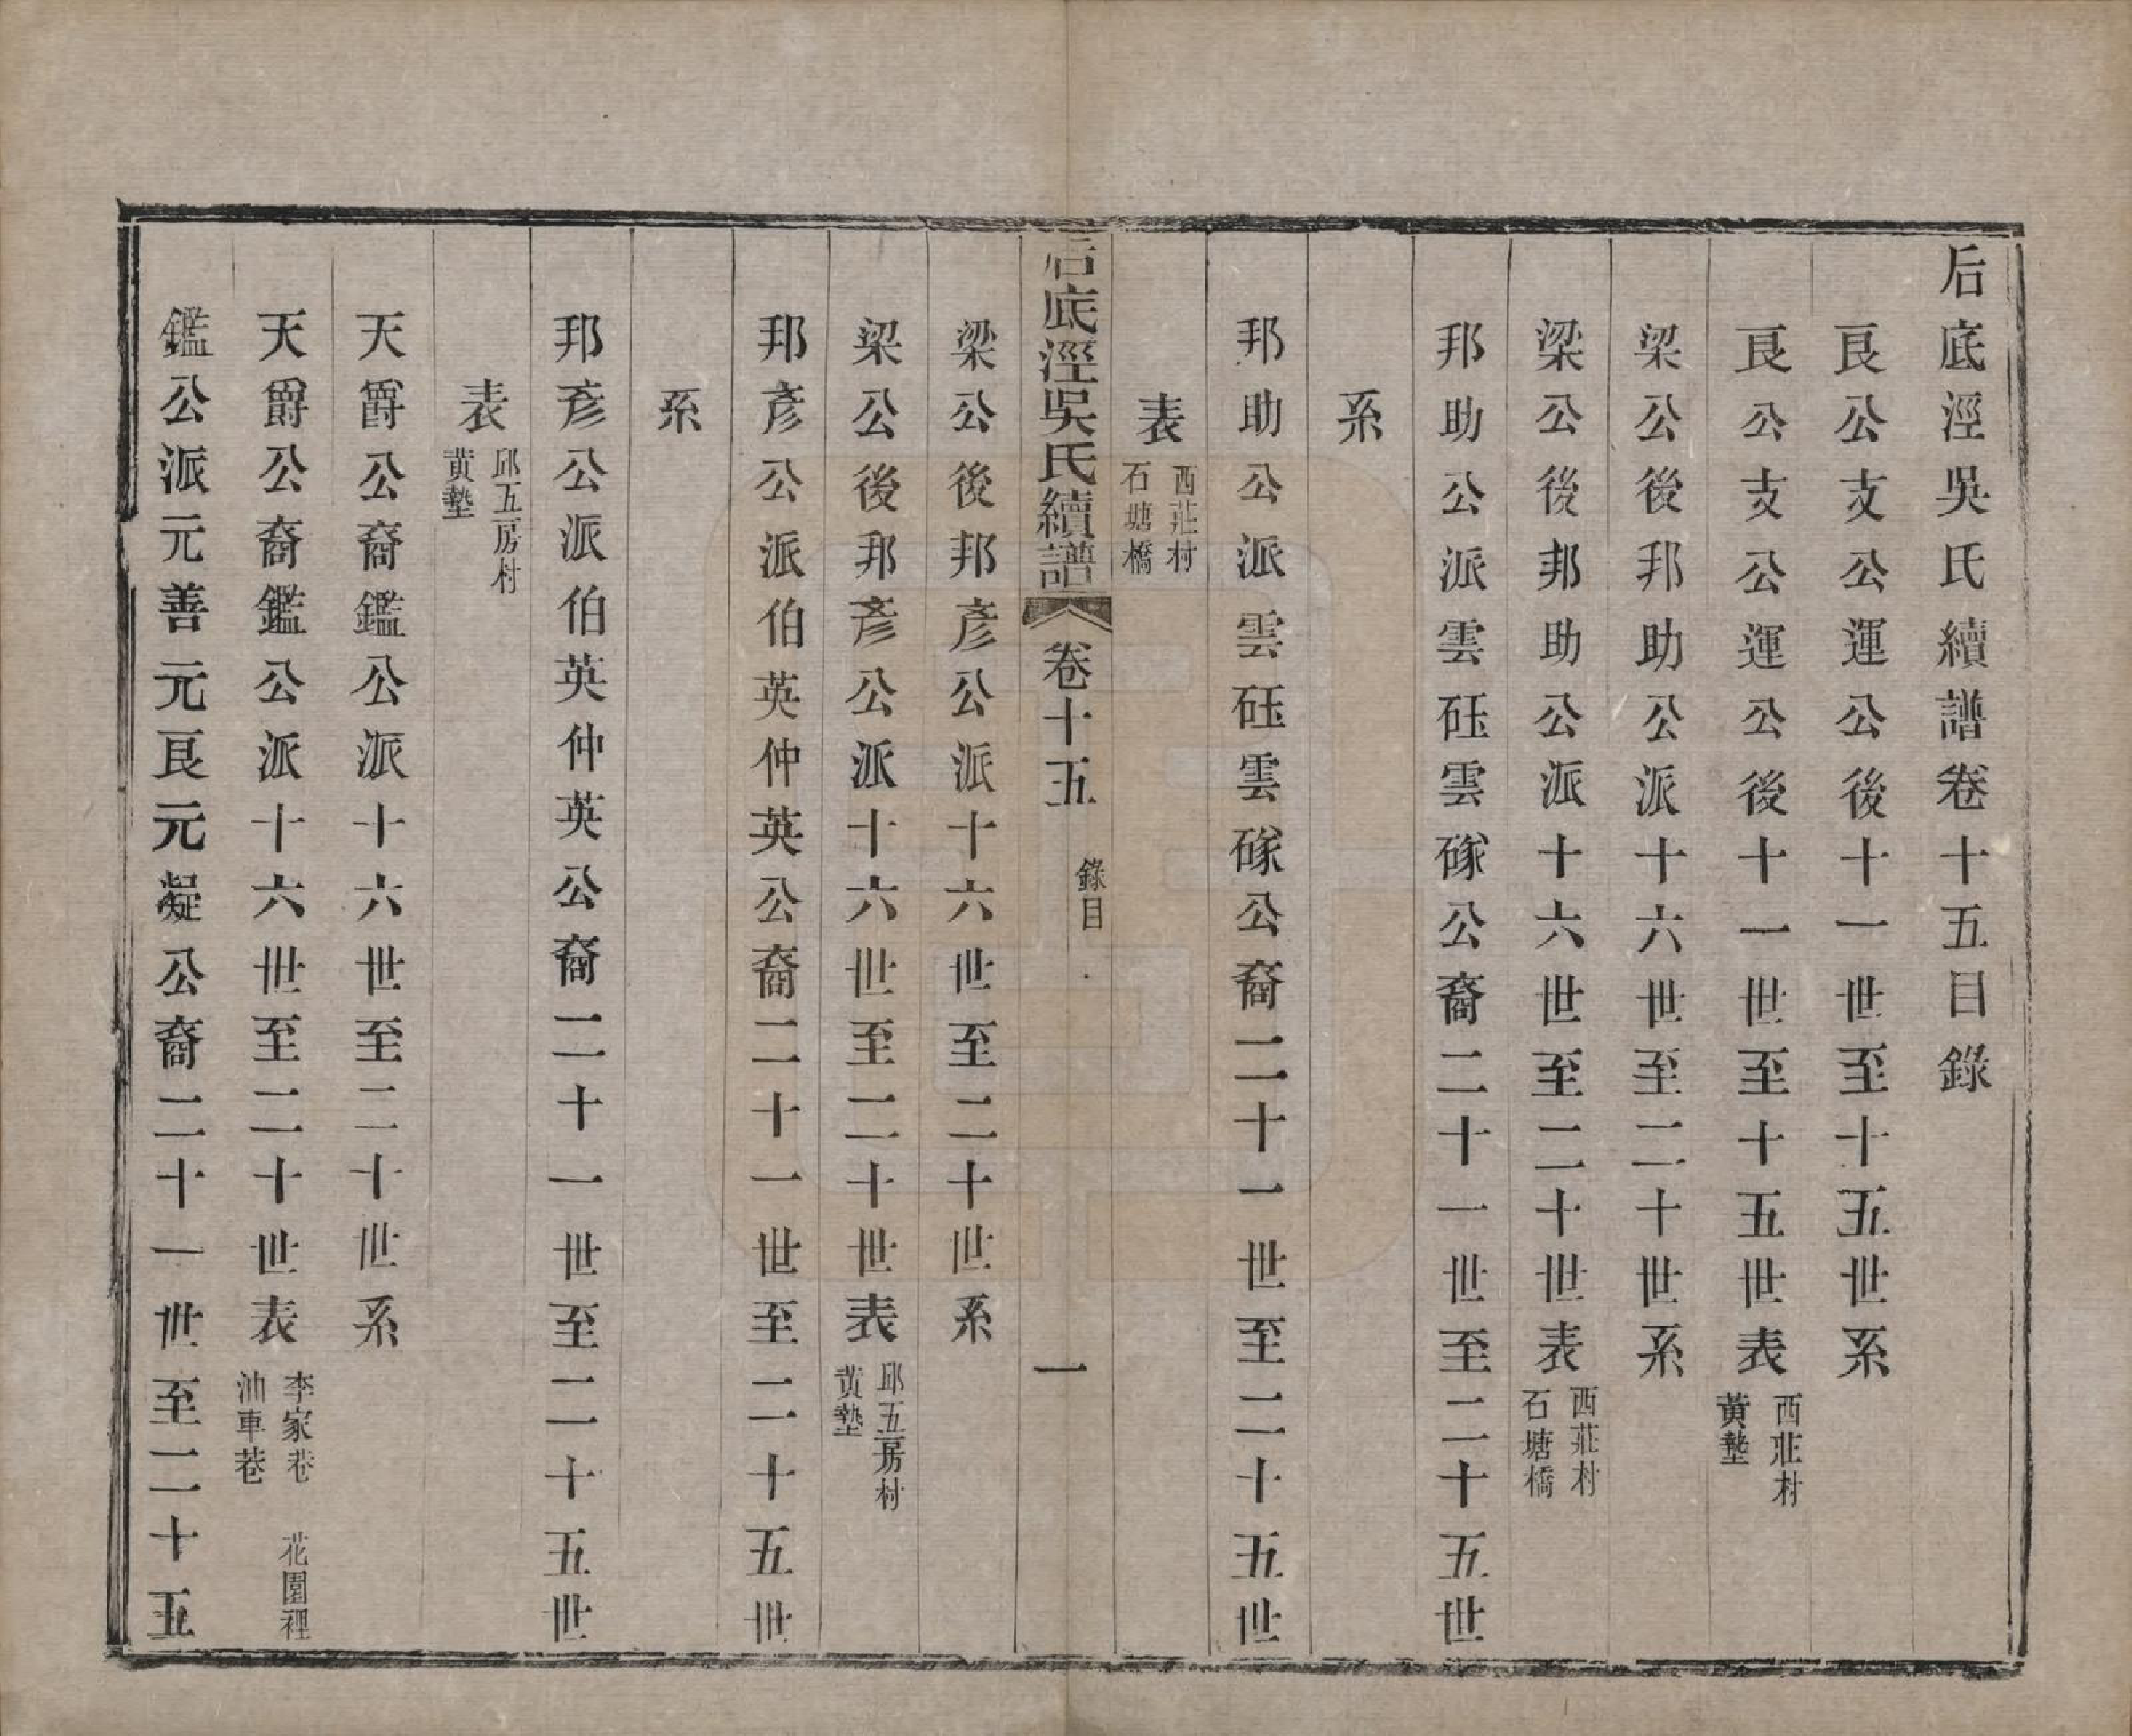 后底涇吳氏續譜卷十五目錄
良公支公運公後十一世至十五世系
良公支公運公後十一世至十五世表 西莊村 黃墊
梁公後邦助公派十六世至二十世系
梁公後邦助公派十六世至二十世表 西莊村 石塘橋
邦助公派雲砡雲磙公裔二十一世至二十五世
系
邦助公派雲砡雲磙公裔二十一世至二十五世
表 西莊村 石塘橋
后底涇吳氏續譜 卷十五 錄目 一
梁公後邦彥公派十六世至二十世系
梁公後邦彥公派十六世至二十世表 邱五房村 黃墊
邦彥公派伯英仲英公裔二十一世至二十五世
系
邦彥公派伯英仲英公裔二十一世至二十五世
表 邱五房村 黃墊
天爵公裔鑑公派十六世至二十世系
天爵公裔鑑公派十六世至二十世表 李家巷 花園裡 油車巷
鑑公派元善元良元凝公裔二十一世至二十五